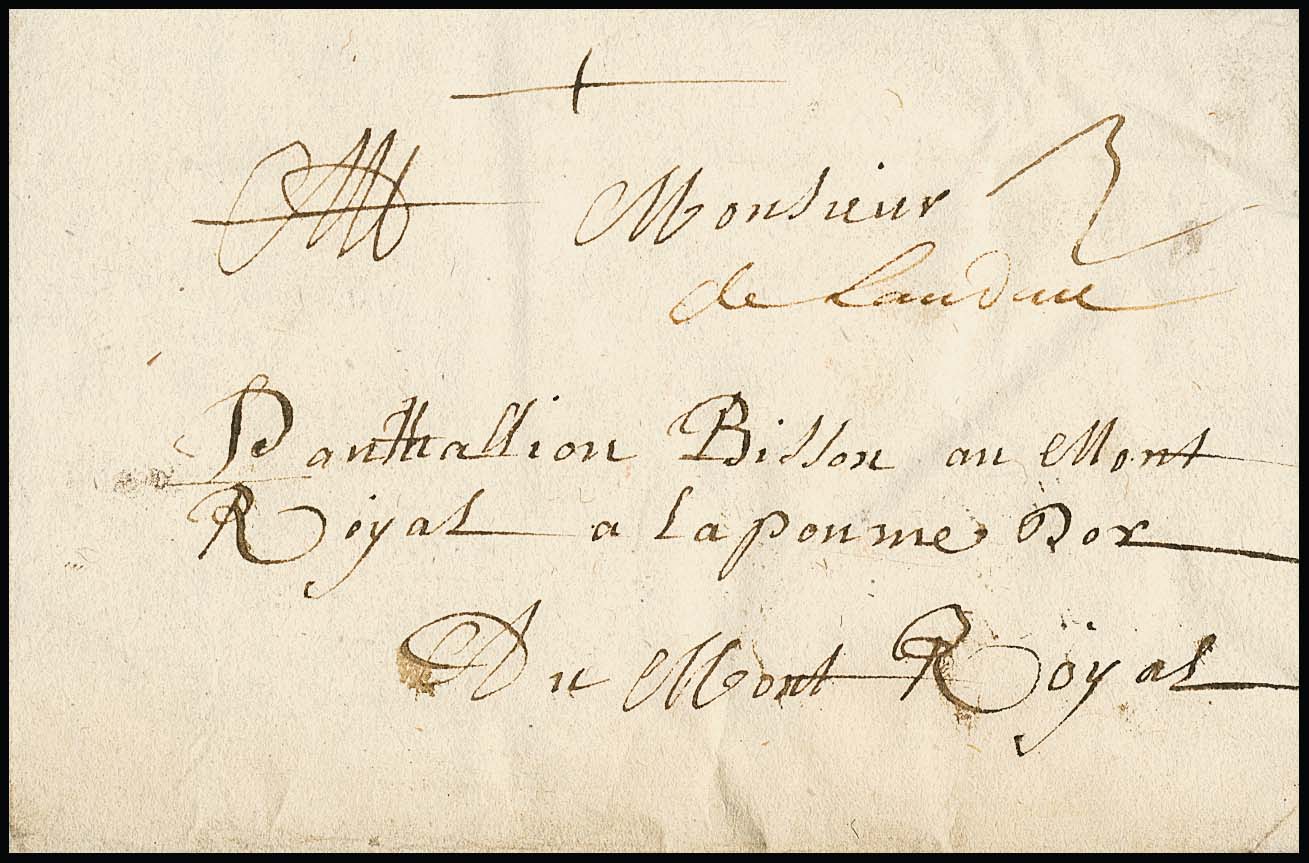 A Monsieur 3
de Landau
Panthallion Bisson au Mont
Royal a la pomme Dor
Du Mont Royal